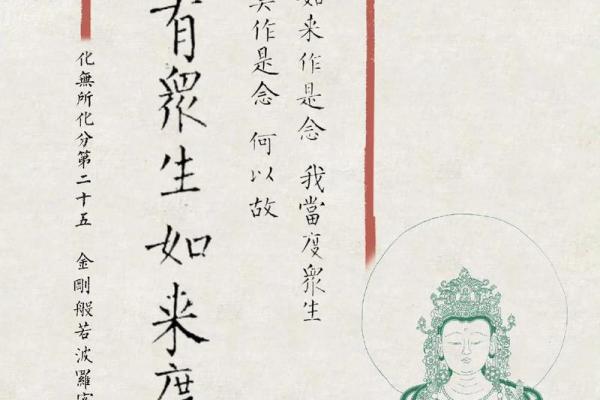 如来作是念 我當度眾生
作是念 何以故
有眾生如来度
化無所化分第二十五 金剛般若波羅